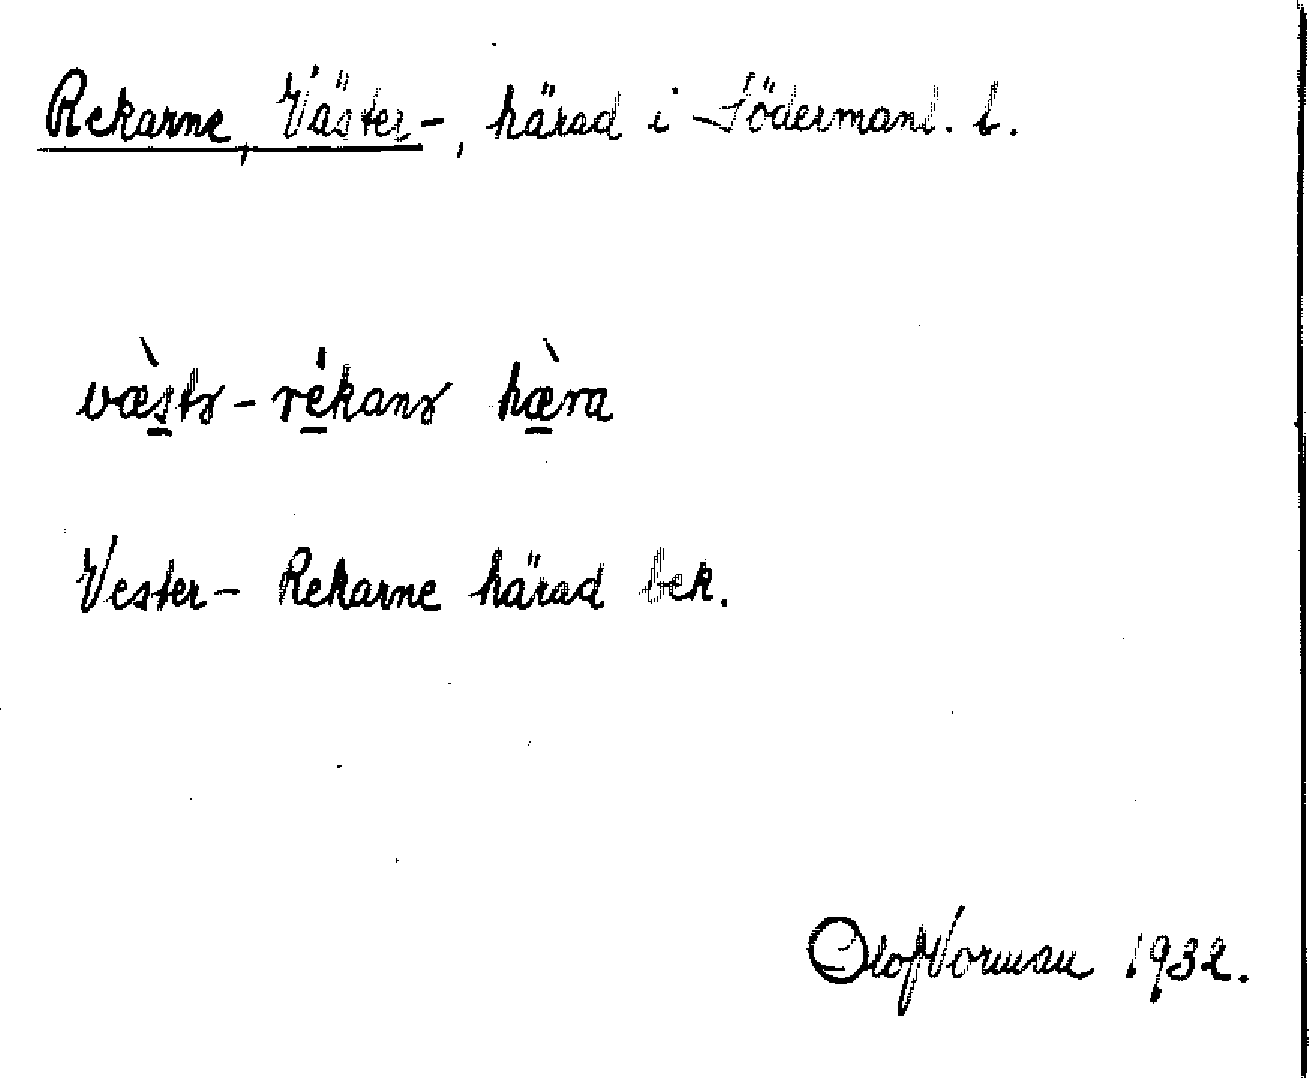 Rekarne, Väster-, härad i Södermanl. l.
væ̀stɤ-rékanɤ hæ̀ra
Vester-Rekarne härad bek.
Olof Norman 1932.